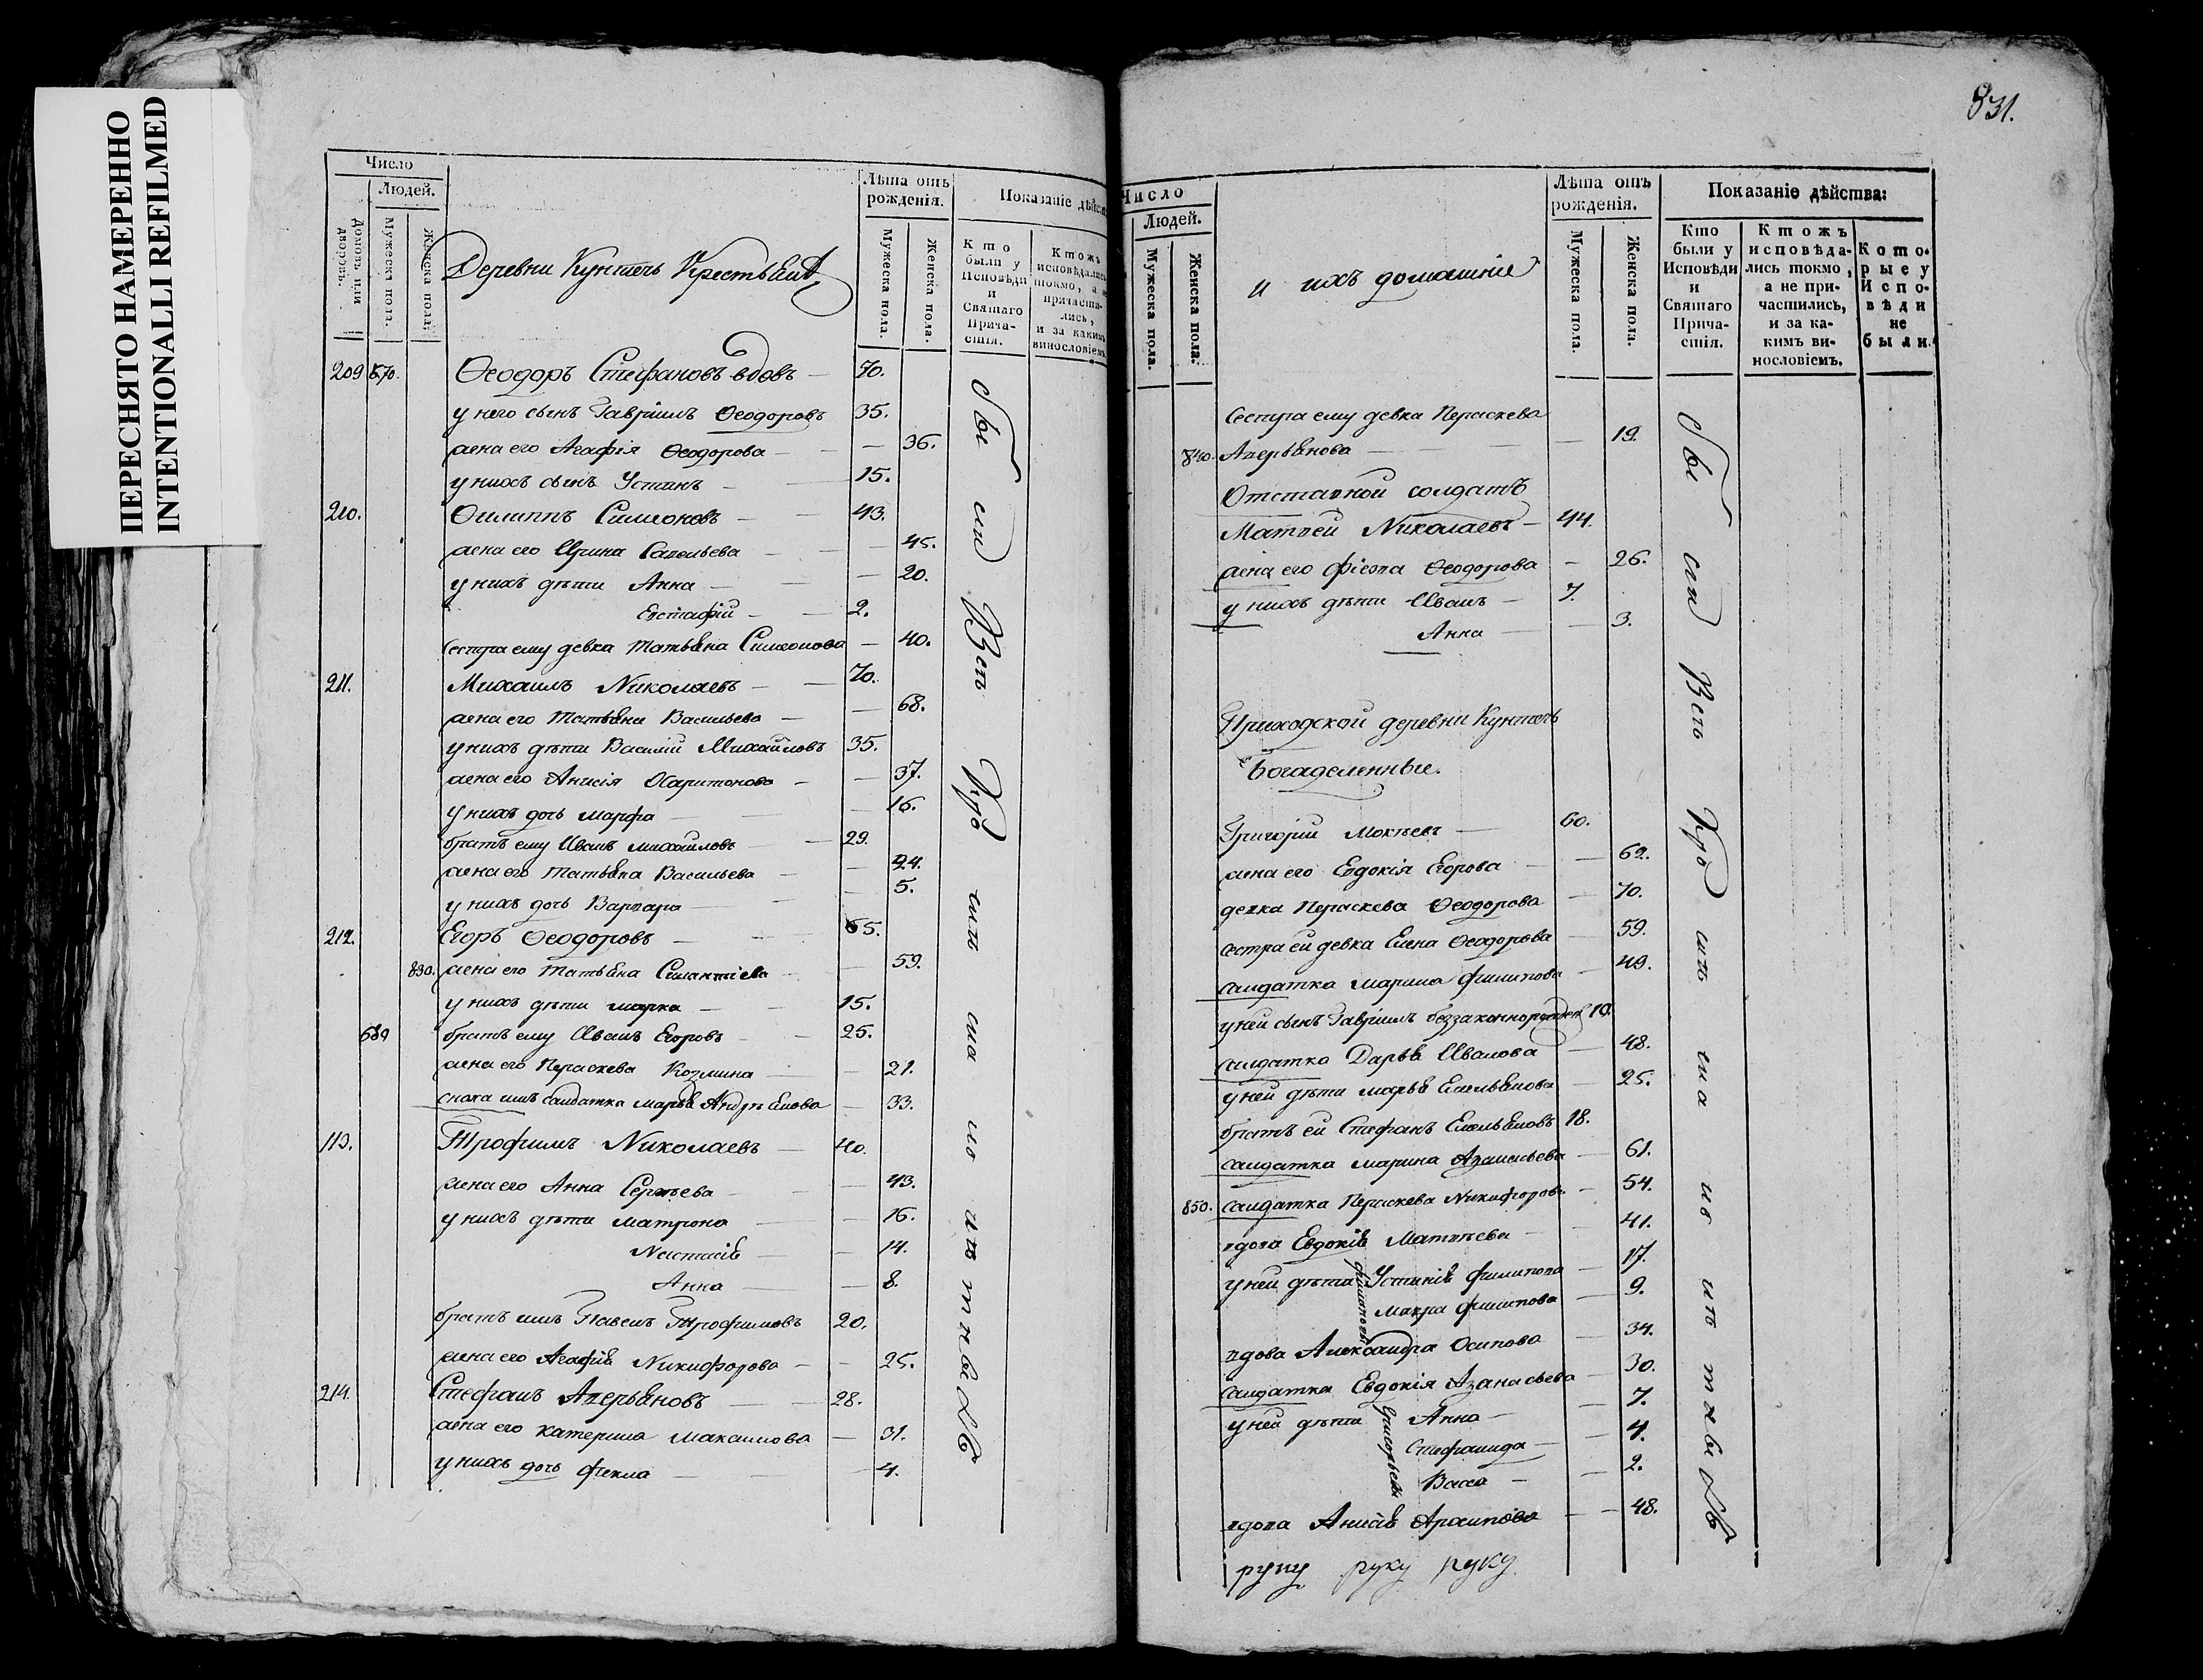 ПЕРЕСНЯТО НАМЕРЕННО
INTENTIONALLI REFILMED
Число
Людей.
Домовъ или дворовъ.
Мужеска пола.
Женска пола.
Деревни Кунтечь Крестьянѣ
Лѣта отъ рожденія.
Мужеска пола.
Женска пола.
Показаніе дѣйст
Кто были у Исповѣди и Святаго Причастія.
Ктожъ исповѣдались токмо, а не причастились, и за какимъ винословіемъ
209 Ѳеодоръ Стефановъ вдовъ 70.
у него сынъ Гавріилъ Ѳеодоровъ 35.
жена его Агафія Ѳеодорова 36.
у нихъ сынъ Устинъ 15.
210. Ѳилиппъ Симеоновъ 43.
жена его Ирина Савельева 45.
у нихъ дѣти Анна 20.
Евстафій 2.
сестра ему девка Татьяна Симеонова 40.
211. Михаилъ Николаевъ 70.
жена его Татьяна Васильева 68.
у нихъ дѣти Василій Михайловъ 35.
жена его Анисія Харитонова 37.
у нихъ дочь марфа 16.
братъ ему Иванъ михайловъ 29.
жена его Татьяна Васильева 24.
у нихъ дочь Варвара 5.
212. Егоръ Ѳеодоровъ 65.
830. жена его Татьяна Силантіева 59.
у нихъ дѣти марка 15.
680 братъ ему Иванъ Егоровъ 25.
жена его Пераскева Козмина 21.
сноха имъ салдатка марья Андреянова 33.
113. Трофимъ Николаевъ 40.
жена его Анна Сергѣева 43.
у нихъ дѣти матрона 16.
Настасія 14.
Анна 8.
братъ имъ Павелъ Трофимовъ 20.
жена его Агафія Никифорова 25.
214. Стефанъ Аверьяновъ 28.
жена его катерина максимова 31.
у нихъ дочь фекла 4.
831.
Число
Людей.
Мужеска пола.
Женска пола.
и ихъ домашніе
Лѣта отъ рожденія.
Мужеска пола.
Женска пола.
Показаніе дѣйства:
Кто были у Исповѣди и Святаго Причастія.
Ктожъ исповѣдались токмо, а не причастились, и за какимъ винословіемъ.
Которые у Исповѣди не были.
сестра ему девка Пераскева
840. Аверьянова 19.
Отставной солдатъ
Матвей Николаевъ 44.
жена его Ѳеодорова 26.
у нихъ дѣти Иванъ 7.
Анна 3.
Приходской деревни Кунтечь
Богаделенные.
Григорій Мокѣевъ 60.
жена его Евдокія Егорова 62.
девка Пераскева Ѳеодорова 70.
сестра ей девка Елена Ѳеодорова 59.
салдатка марина филипова 49.
у ней сынъ Гавріилъ беззаконнорожден 10.
салдатка Дарья Иванова 48.
у ней дѣти марья Емельянова 25.
братъ ей Стефанъ Емельяновъ 18.
салдатка марина Афанасьева 61.
850. салдатка Пераскева Никифорова 54.
вдова Евдокія Матвѣева 41.
у ней дѣти Устинія филипова 17.
мавра филипова 9.
вдова Александра Осипова 34.
салдатка Евдокія Афанасьева 30.
у ней дѣти Анна 7.
Григорьевы
Стефанида 4.
Васса 2.
вдова Анисія Архипова 48.
руку руку руку